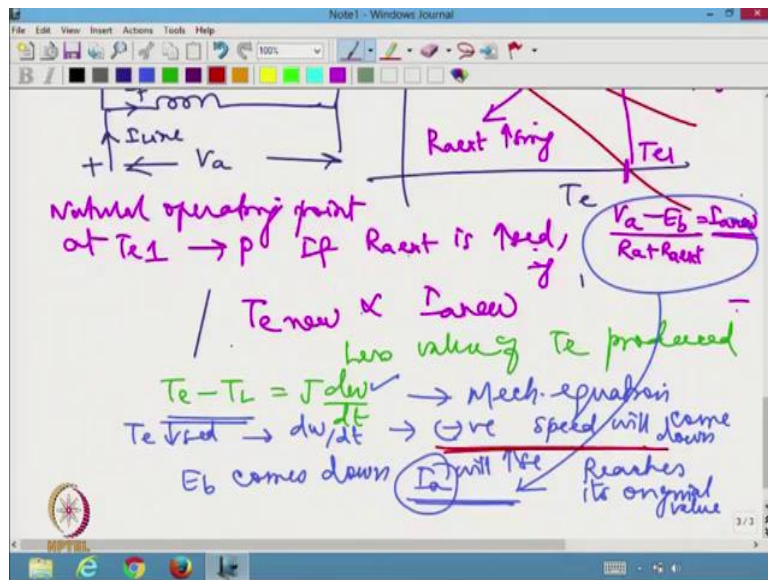 Note1 - Windows Journal
File Edit View Insert Actions Tools Help
100%
B I
ILine
+ ← Va →
Raext ↑sing
Te1
Te
Natural operating point
at Te1 → P If Raext is ↑sed,
Va - Eb = Ianew
Ra + Raext
Te new ∝ Ianew
Less value of Te produced
Te - TL = J dw/dt ✓ → Mech. equation
Te ↓sed → dw/dt → (-)ve speed will come down
Eb comes down Ia will ↑se Reaches its original value
3/3
NPTEL